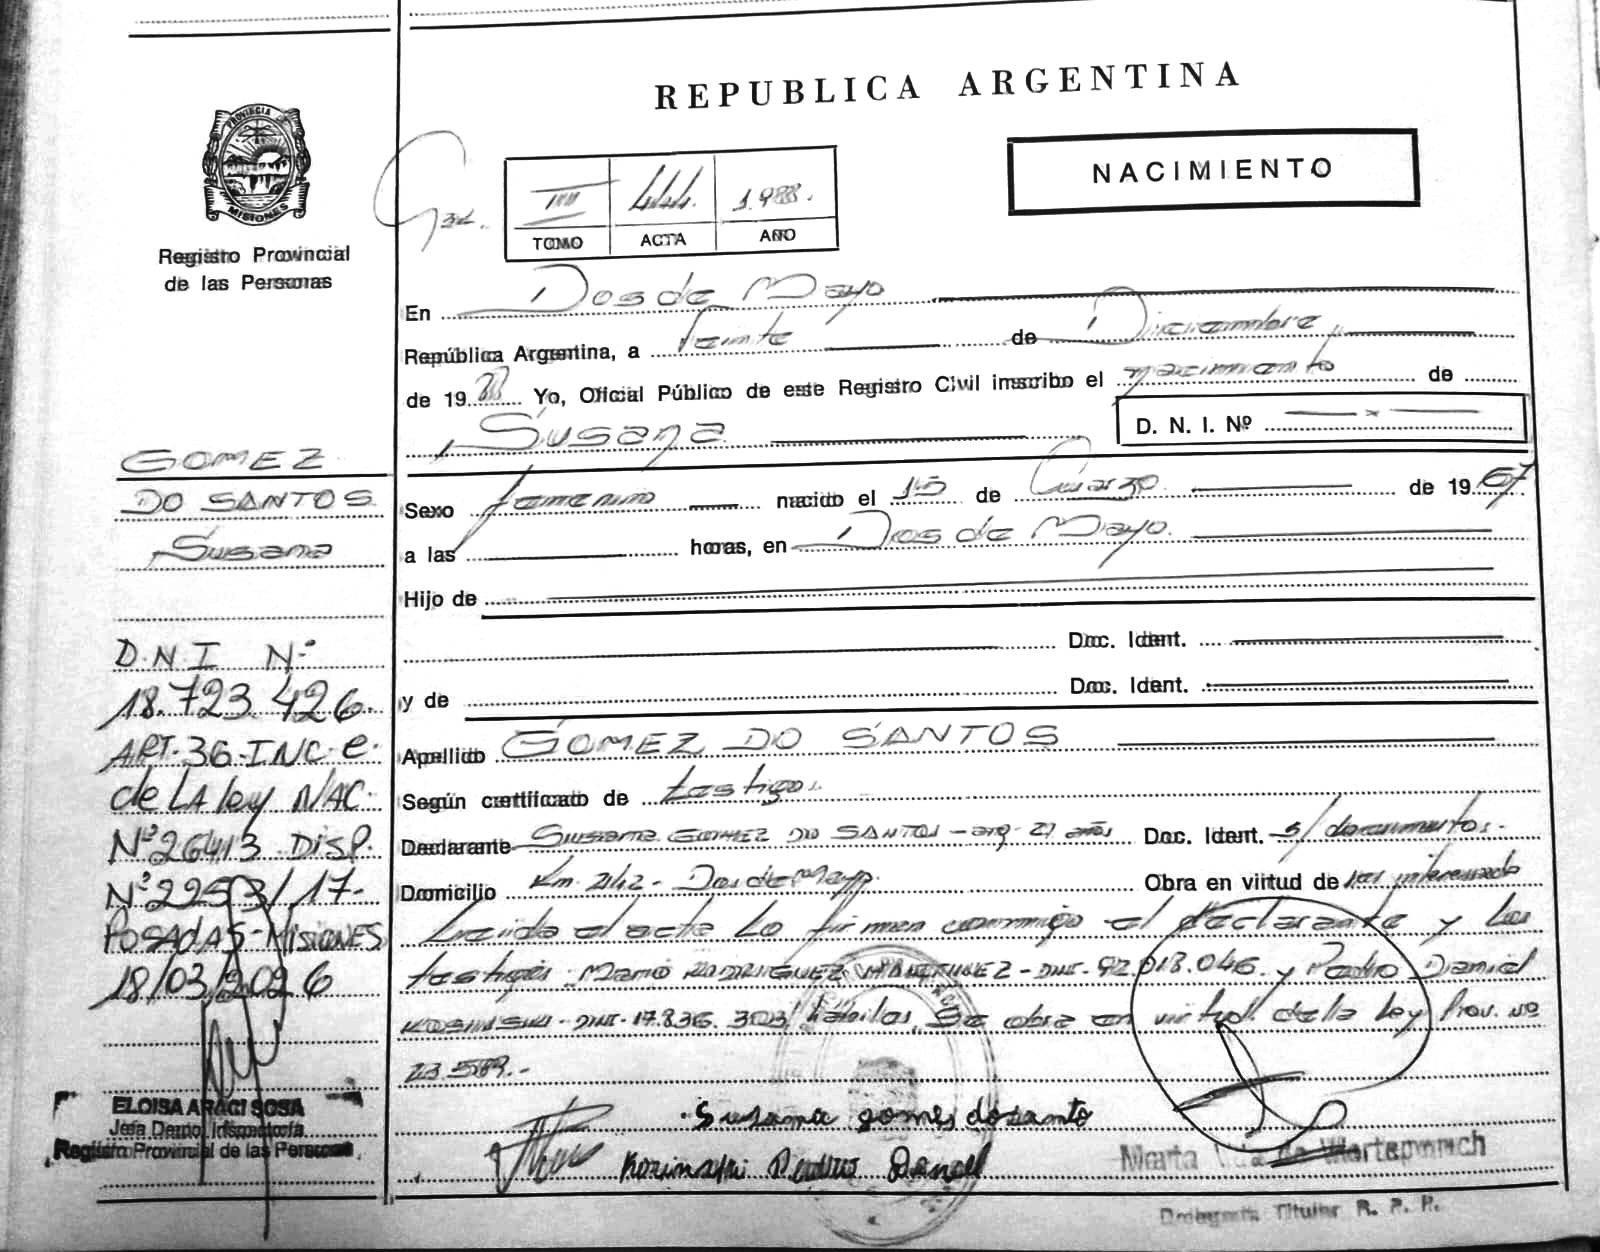 REPUBLICA ARGENTINA
PROVINCIA DE
MISIONES
Registro Provincial
de las Personas
NACIMIENTO
III 444. 1.988.
TOMO ACTA AÑO
En Dos de Mayo
República Argentina, a Veinte de Diciembre
de 19 88 Yo, Oficial Público de este Registro Civil inscribo el nacimiento de
Susana
D. N. I. Nº
Sexo femenino nacido el 15 de Marzo de 19 67
a las horas, en Dos de Mayo.
Hijo de
Doc. Ident.
y de Doc. Ident.
Apellido GOMEZ DO SANTOS
Según certificado de testigos.
Declarante Susana GOMEZ DO SANTOS - arg - 21 años Doc. Ident. s/documentos.
Domicilio Km. 242 - Dos de Mayo. Obra en virtud de ser interesado
Leída el acta la firman conmigo el declarante y los
testigos: Mario RODRIGUEZ MARTINEZ - DNI - 92.018.046. y Pedro Daniel
KOSINSKI - DNI - 17.836.303 / hábiles. Se obra en virtud de la Ley Prov. Nº
23.589.-
Susana gomes dosanto
Kozinski Pedro Daniel
Marta Vda de
Titular R. P. P.
GOMEZ
DO SANTOS
Susana
D.N.I Nº
18.723.426.
ART.36-INC e.
de LA ley NAC.
Nº26413 DISP.
Nº2253/17-
POSADAS-MISIONES
18/03/2026
ELOISA ARACI SOSA
Jefa Depto. Identificación
Registro Provincial de las Personas